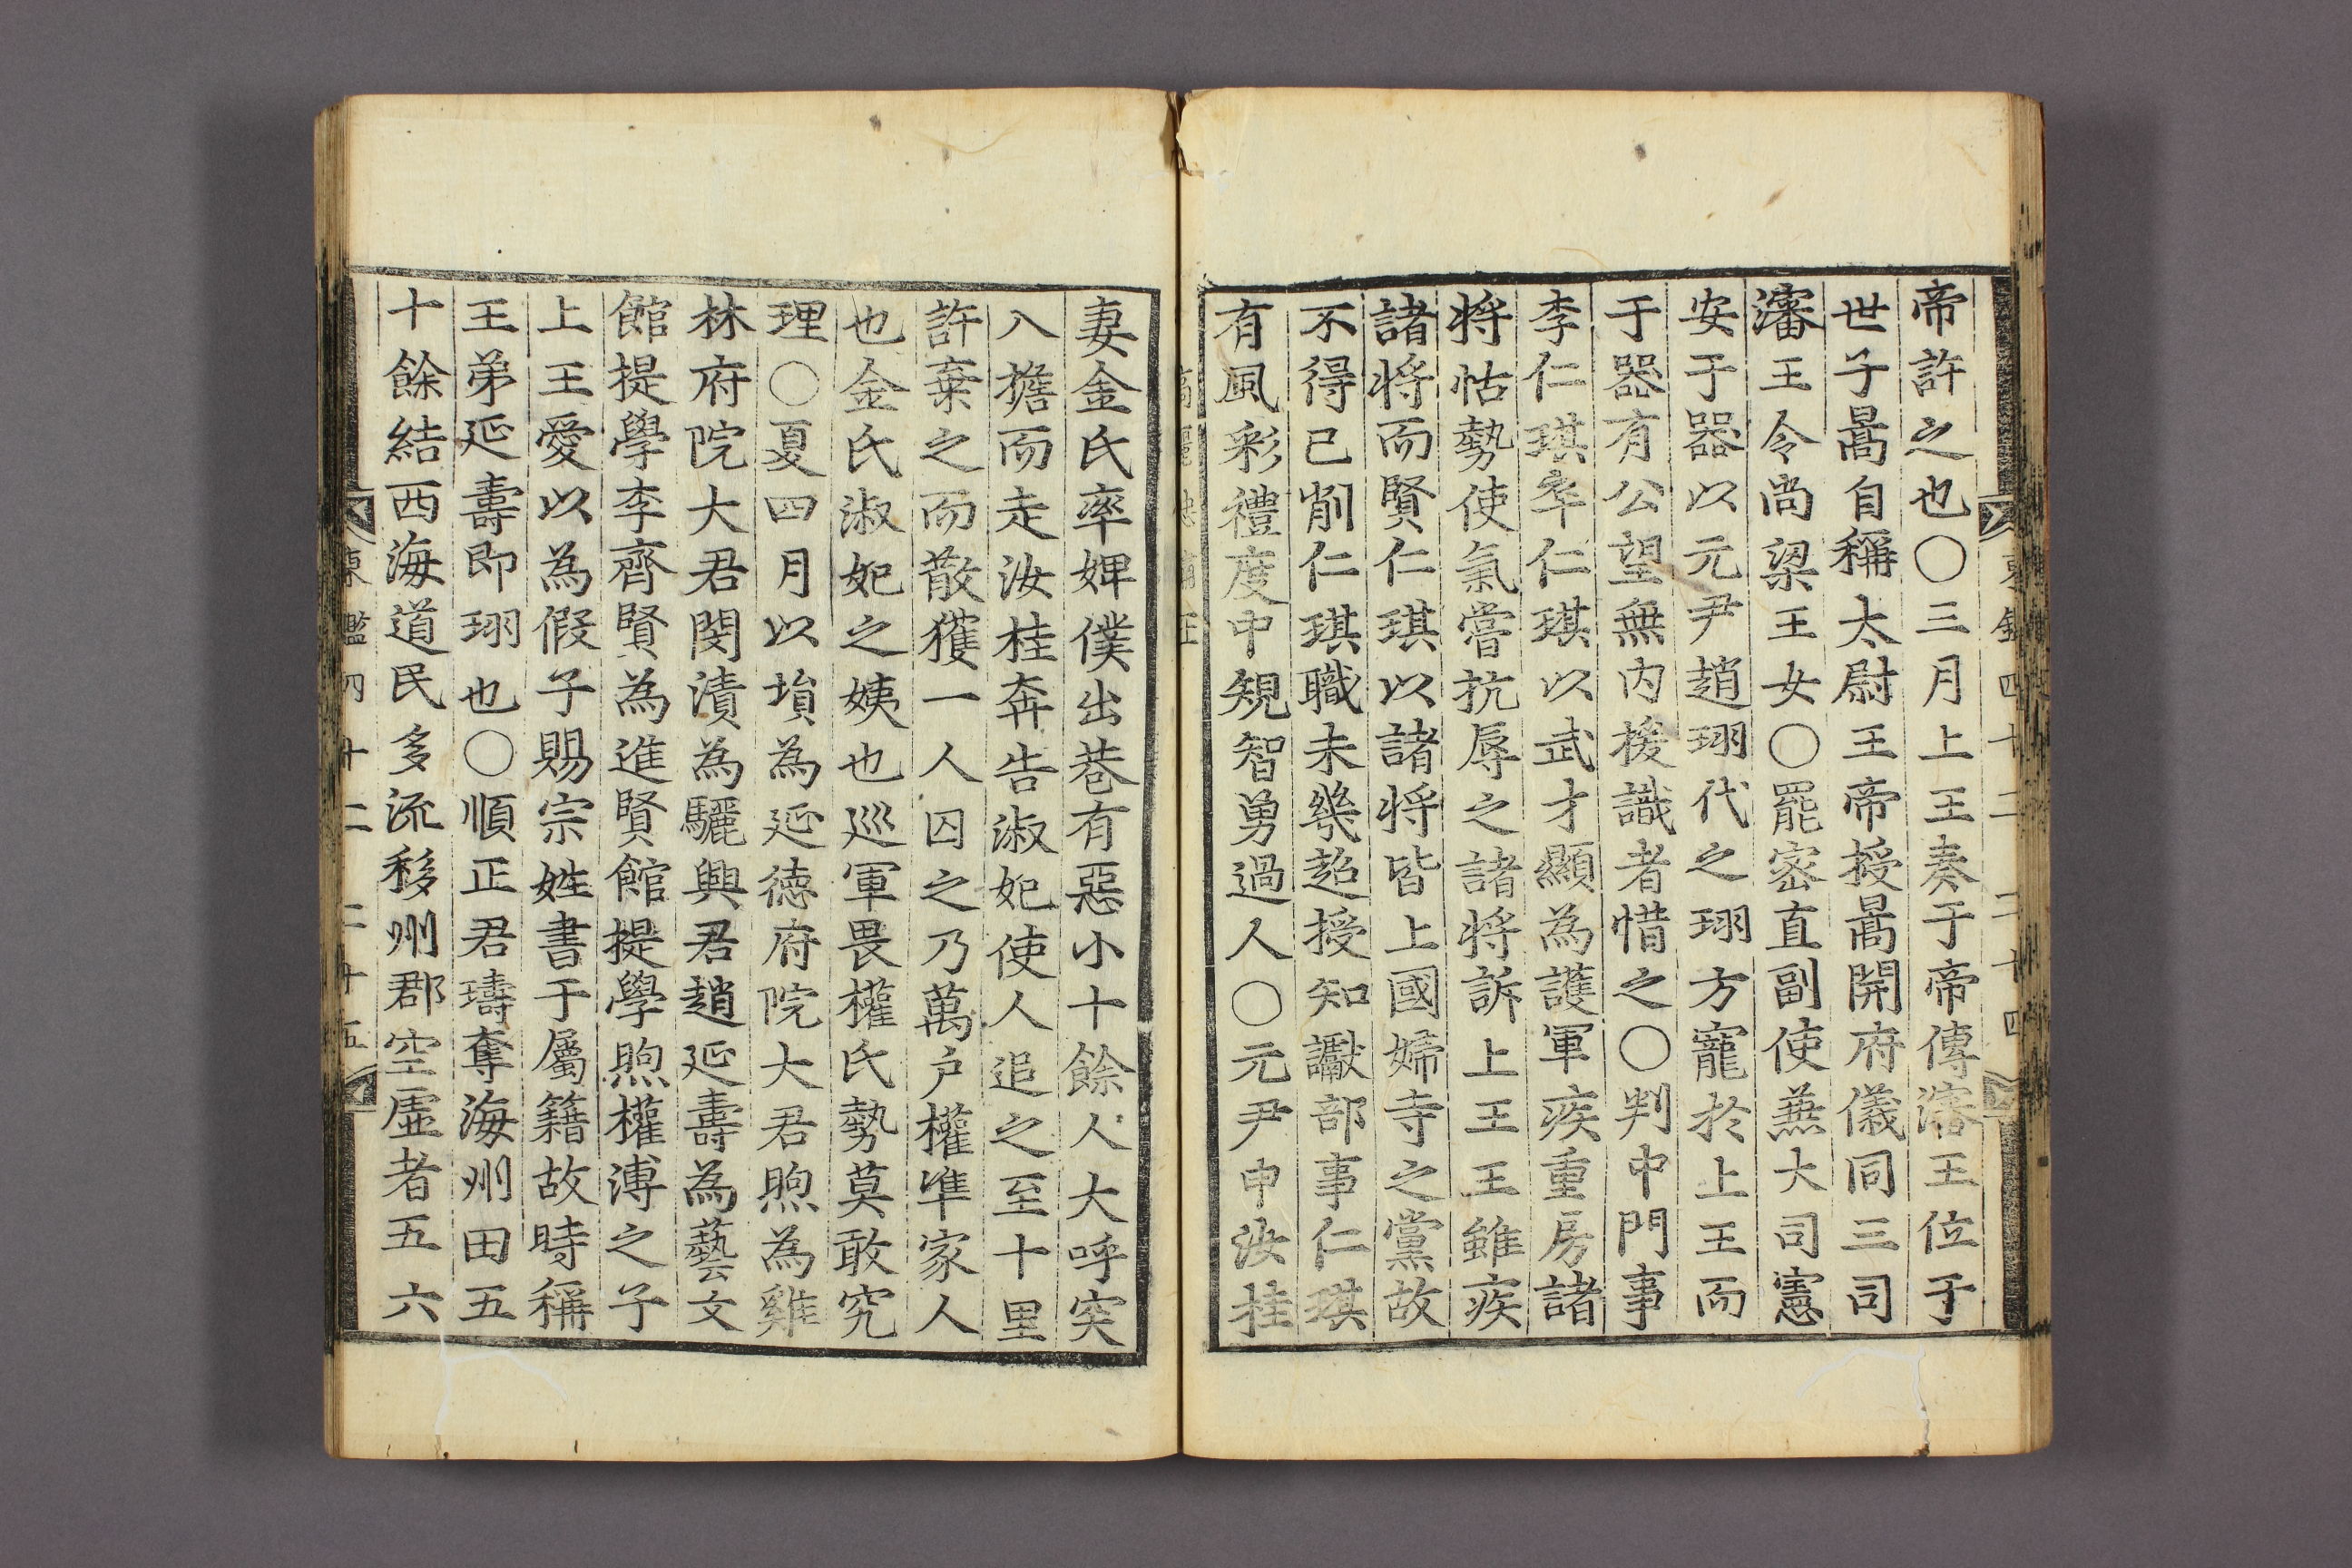 帝許之也○三月上王奏于帝傳瀋王位于
世子暠自稱太尉王帝授暠開府儀同三司
瀋王令尚梁王女○罷密直副使蕪大司憲
安于器以元尹趙珝代之珝方寵於上王而
于器有公望無內援識者惜之○判中門事
李仁琪卒仁琪以武才顯為護軍疾重房諸
将怙勢使氣嘗抗辱之諸将訴上王王雖疾
諸将而賢仁琪以諸将皆上國婦寺之黨故
不得已削仁琪職未幾超授知讞部事仁琪
有風彩禮度中規智勇過人○元尹申汝桂
妻金氏率婢僕出巷有惡小十餘人大呼突
入擔而走汝桂奔告淑妃使人追之至十里
許棄之而散獲一人囚之乃萬户權準家人
也金氏淑妃之姨也巡軍畏權氏勢莫敢究
理○夏四月以塤為延德府院大君煦為雞
林府院大君閔漬為驪興君趙延壽為藝文
館提學李齊賢為進賢館提學煦權溥之子
上王愛以為假子賜宗姓書于屬籍故時稱
王弟延壽即珝也○順正君璹奪海州田五
十餘結西海道民多流移州郡空虛者五六
東鑑四十二 二十五